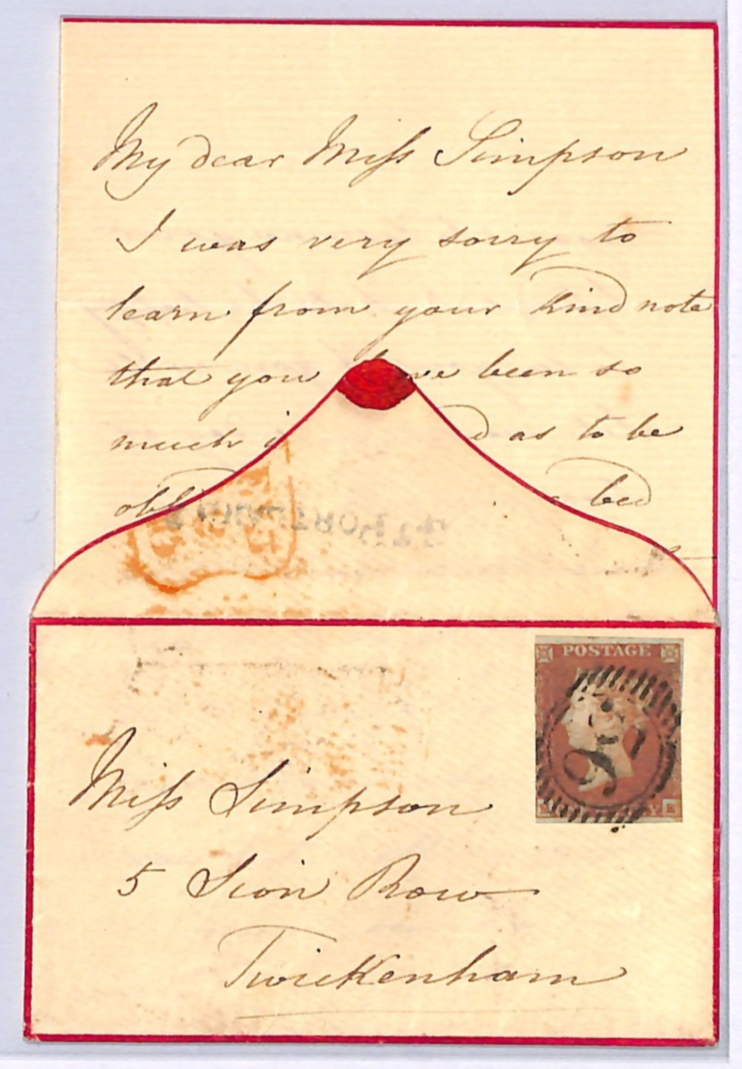 My dear Miss Simpson
I was very sorry to
learn from your kind note
that you have been so
much as to be
bed
POSTAGE
Miss Simpson
5 Sion Row
Twickenham